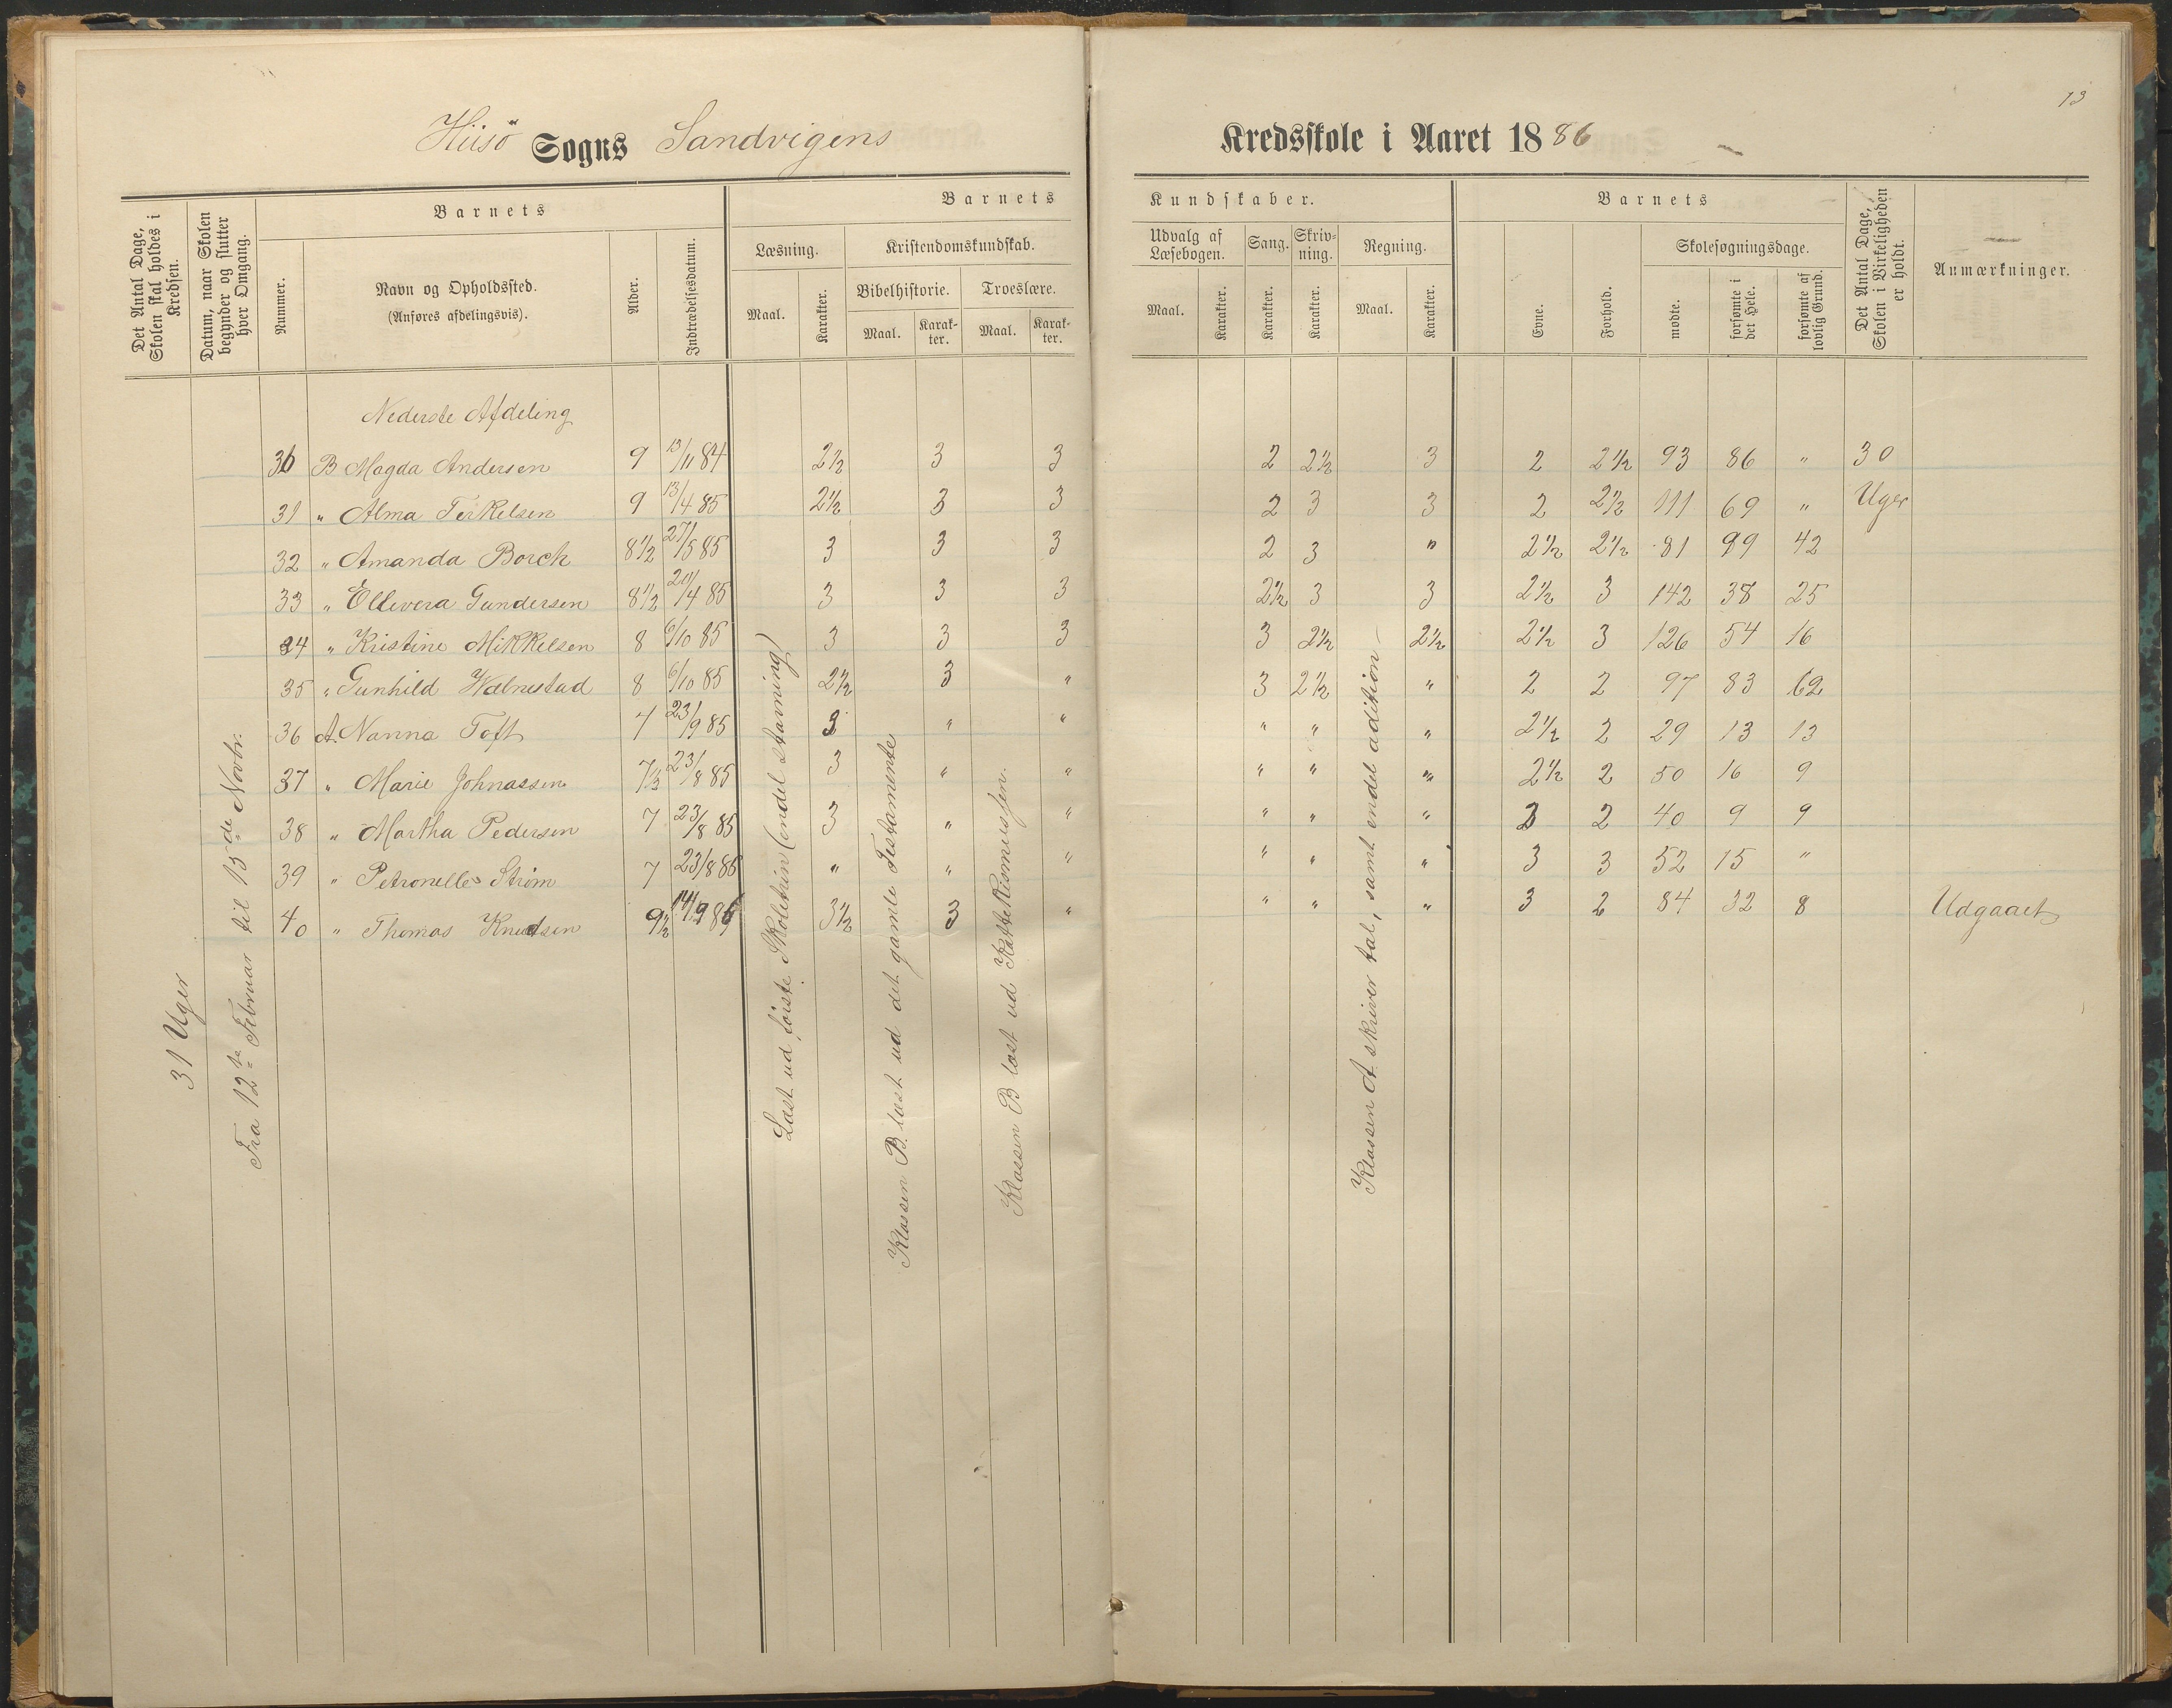 13
Hisö Sogns Sandvigens Kredsskole i Aaret 1886
Det Antal Dage, Skolen skal holdes i Kredsen.
Datum, naar Skolen begynder og slutter hver Omgang.
Barnets
Nummer.
Navn og Opholdssted.
(Anføres afdelingsvis).
Alder.
Indtrædelsesdatum.
Barnets Kundskaber.
Læsning.
Maal.
Karakter.
Kristendomskundskab.
Bibelhistorie.
Maal.
Karakter.
Troeslære.
Maal.
Karakter.
Udvalg af Læsebogen.
Maal.
Karakter.
Sang.
Karakter.
Skrivning.
Karakter.
Regning.
Maal.
Karakter.
Barnets
Evne.
Forhold.
Skolesøgningsdage.
mødte.
forsømte i det Hele.
forsømte af lovlig Grund.
Det Antal Dage, Skolen i Virkeligheden er holdt.
Anmærkninger.
Nederste Afdeling
30 B Magda Andersen 9 13/11 84 2½ 3 3 2 2½ 3 2 2½ 93 86 " 30
31 " Alma Terkelsen 9 13/4 85 2½ 3 3 2 3 3 2 2½ 111 69 " Uger
32 " Amanda Borch 8½ 27/5 85 3 3 3 2 3 " 2½ 2½ 81 99 42
33 " Ellevera Gundersen 8½ 20/4 85 3 3 3 2½ 3 3 2½ 3 142 38 25
34 " Kristine Mikkelsen 8 6/10 85 3 3 3 3 2½ 2½ 2½ 3 126 54 16
35 " Gunhild 8 6/10 85 2½ 3 " 3 2½ " 2 2 97 83 62
36 A. Nanna Toft 7 23/9 85 3 " " " " " 2½ 2 29 13 13
37 " Marie Johnassen 7½ 23/8 85 3 " " " " " 2½ 2 50 16 9
38 " Martha Pedersen 7 23/8 85 3 " " " " " 3 2 40 9 9
39 " Petronelle Strøm 7 23/8 86 " " " " " " 3 3 52 15 "
40 " Thomas Knudsen 9½ 14/9 86 3½ 3 " " " " 3 2 84 32 8 Udgaaet
31 Uger
Fra 12te Februar til 15de Novbr.
Læst ud første Skoletrin (endel stavning)
Klassen B. læst ud det gamle Testamente
Klassen B læst ud Kattekismussen.
Klassen A skriver tal, samt endel adition